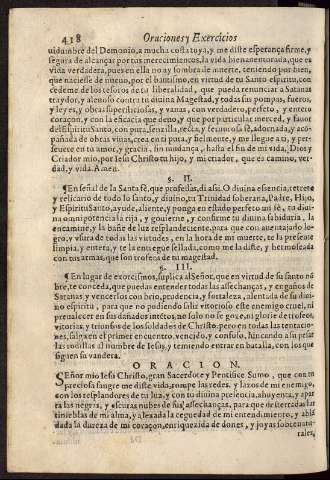 418 Oraciones y Exercicios
uidumbre del Demonio, a mucha costa tuya, y me diste esperança firme, y
segura de alcançar por tus merecimientos, la vida bienauenturada, que es
vida verdadera, pues en ella no ay sombra de muerte, teniendo por bien,
que naciesse de nueuo, por el bautismo, en virtud de tu Santo espiritu, con
cedeme de los tesoros de tu liberalidad, que pueda renunciar a Satanas
traydor, y aleuoso contra tu diuina Magestad, y todas sus pompas, fueros,
y leyes, y obras supersticiosas, y vanas, con verdadero, perfeto, y entero
coraçon, y con la eficacia que deuo, y que por particular merced, y fauor
del Espiritu Santo, con pura, senzilla, recta, y fe
adornada, y aco
pañada de obras viuas, crea en ti pura, y fielmente, y me llegue a ti, y per-
seuere en tu amor, y gracia, sin mudança, hasta el fin de mi vida, Dios y
Criador mio, por Iesu Christo tu hijo, y mi criador, que es camino, ver-
dad, y vida. Amen.
§. II.
¶ En señal de la Santa fè, que professas, di assi. O diuina essencia, retrete
y relicario de todo lo santo, y diuino, tu Trinidad soberana, Padre, Hijo,
y Espiritu Santo, ayude, aliente, y ponga en estado perfecto mi fè, tu diui-
na omnipotencia la rija, y gouierne, y confirme tu diuina sabiduria, la
encamine, y la bañe de luz resplandeciente, para que con auentajado lo-
gro, y vsura de todas las virtudes, en la hora de mi muerte, te la presente
limpia, y entera, y te la entregue sellada, como me la diste, y hermoseada
con tus armas, que son trofeos de tu magestad.
§. III.
¶ En lugar de exorcismos, suplica al Señor, que en virtud de su santo nõ
bre, te conceda, que puedas entender todas las assechanças, y engaños de
Satanas, y vencerlos con brio, prudencia, y fortaleza, alentada de su diui-
no espiritu, para que no pudiendo salir vitorioso este enemigo cruel, ni
preualecer en sus dañados intentos, no solo no se goze, ni glorie de trofeos,
vitorias, y triunfos de los soldados de Christo: pero en todas las tentacio-
nes, salga en el primer encuentro, vencido, y confuso, hincando a su pesar
las rodillas al nombre de Iesus, y temiendo entrar en batalla, con los que
siguen su vandera.
ORACION.
SEñor mio Iesu Christo, gran Sacerdote y Pontifice Sumo, que con tu
preciosa sangre me diste vida, rompe las redes, y lazos de mi enemigo,
con los resplandores de tu luz, y con tu diuina presencia, ahuyenta, y apar
ta las negras, y escuras nubes de sus assechanças, para que desterradas las
tinieblas de mi alma, y alexada la ceguedad de mi entendimiento, y ablã
dada la dureza de mi coraçon, enriquezida de dones, y joyas sobrenatu-
rales,